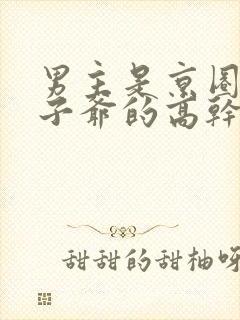 男主是京圈
子爺的高幹
甜甜的甜柚呀